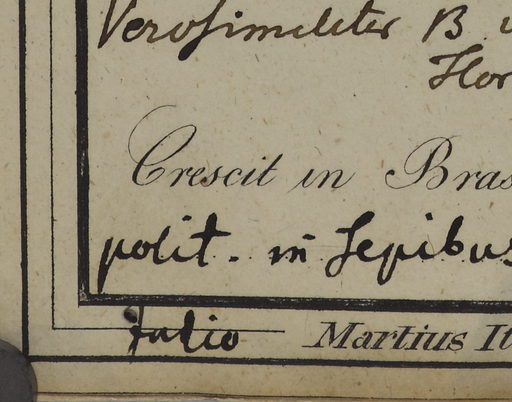 Verosimiliter B
Hor
Crescit in Bras
polit. in Sepibus
Julio Martius It